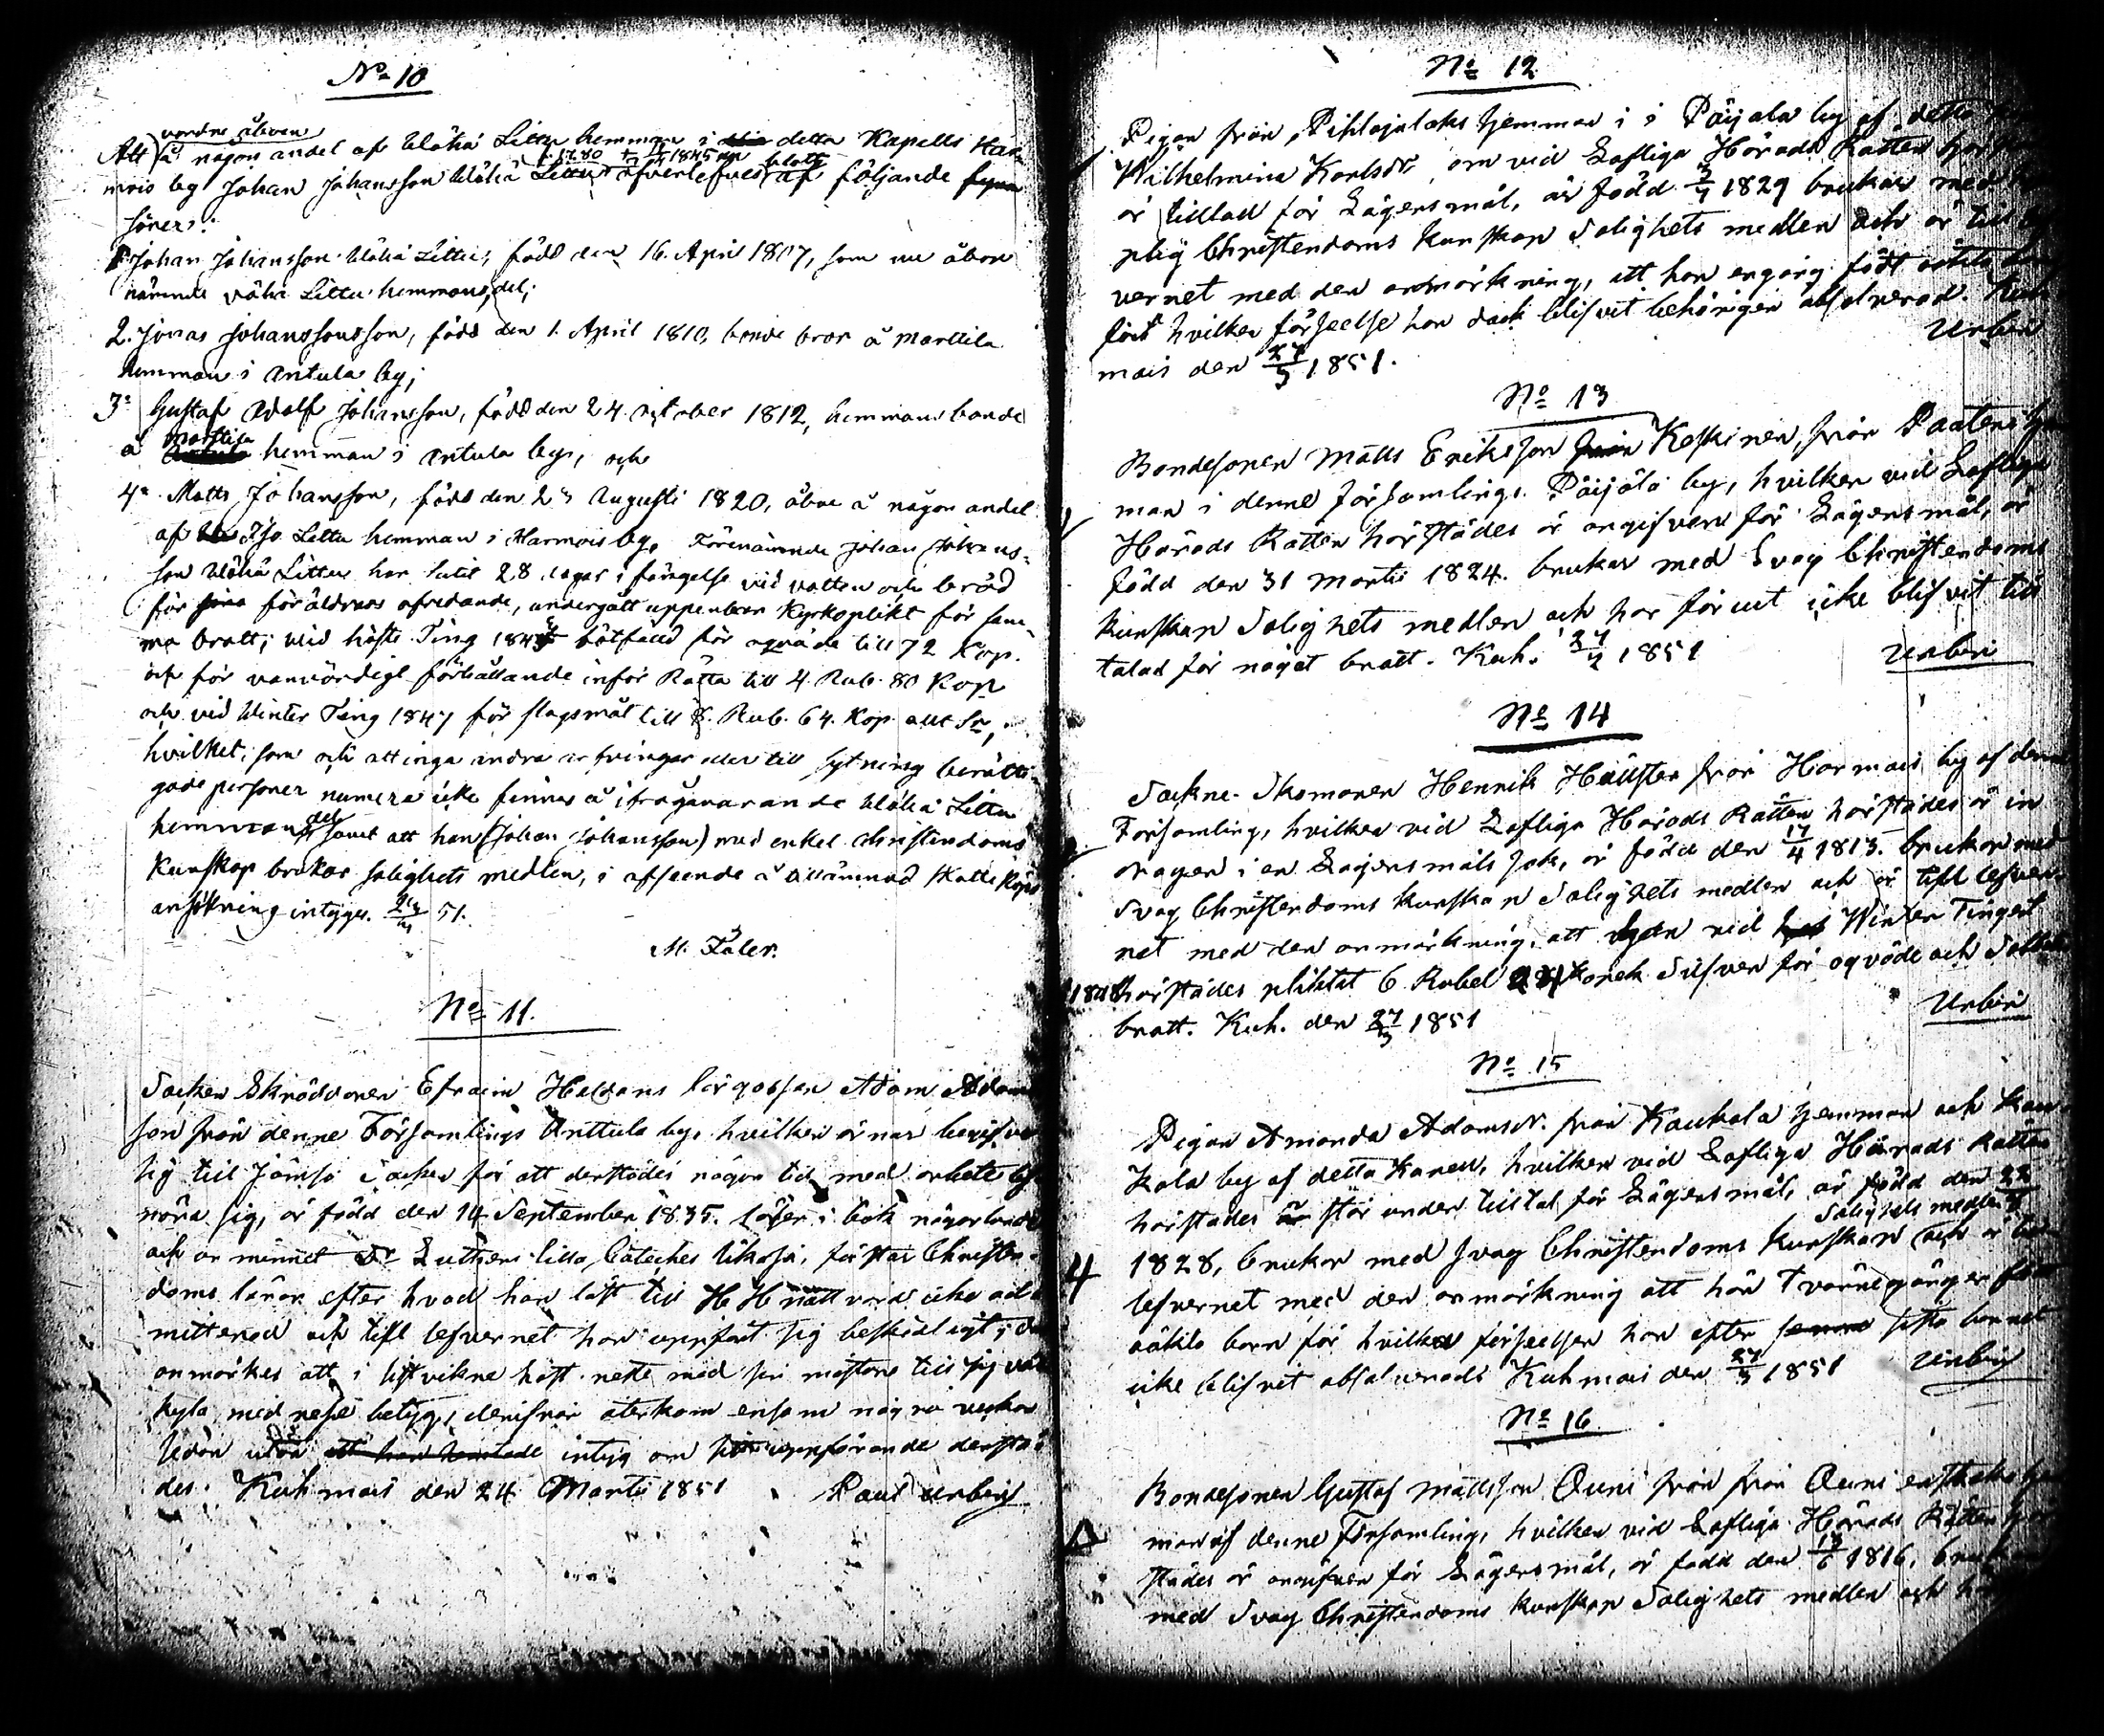 No 10
vordne åboen
Att å någon andel af Wähä Littu hemman i detta Kapells Har-
f. 1780 + 1845 blott
mois by Johan Johansson Wähä Littu öfverlefves af följande
söner:
1. Johan Johansson Wähä Littu, född den 16. April 1807, som nu åbor
nämnde Wähä Littu hemmans del;
2. Jonas Johanssonsson, född den 1. April 1810, bonde bror å Marttila
hemman i Antula by;
3: Gustaf Adolf Johansson, född den 24 October 1812, hemmans bonde
Marttila
å hemman i Antula by, och
4: Matts Johansson, född den 23 Augusti 1820, åboe å någon andel
af Iso Littu hemman i Harmois by. Förenämnde Johan Johans-
son Wähä Littu har sutit 28 dagar i fängelse vid vatten och bröd
för föräldrars ofredande, undergått uppenbar Kyrkoplikt för sam-
ma brott; vid höste Ting 184 bötfälld för oqväde till 72 Kop.
och för vanvördigt förhållande inför Rätta till 4. Rub. 80 Kop
och vid Winter Ting 1847 för slagsmål till 8. Rub. 64. Kop allt Sr,
hvilket, som och att inga andra arfvingar eller till sytning berätti-
gade personer numera icke finnas å ifrågavarande Wähä Littu
hemmans del samt att han (Johan Johansson) med enkel christendoms
Kunskap brukar salighets medlen, i afseende å tillämnad Skatte Köps
ansökning intygas. 51.
M. Föler.
No 11.
Socken Skräddaren Efraim Hellgans lärgosse Adam Adam
son från denne Församlings Anttula by, hvilken är nar begifva
sig till Jämsä Socken för att derstädes någon tid med arbete
nära sig, är född den 14 September 1835. läser i bok någorlunda
och ur minnet Dr Luthers lilla Cateches likaså, förstår Christen-
doms läran efter hvad han läst till HH nattvard icke ad-
mitterad och till lefvernet har uppfört sig beskedligt; då
anmärkes att i sistvikne höst reste med sin mästare till
kyla med resebetyg, derifrån återkom ensam några veckor
sedan utan intyg om sitt uppförande derstä-
des. Kuhmois den 24 Martii 1851 Paul Urbin
No 12
Pigan från Pihlajalaks hemman i Päijälä by af detta
Wilhelmina Karlsdr, om vid Lofliga Härads Rätten här
är tilltalad för Lägersmål, är född 1829 brukar med
plig Christendoms kunskap Salighets medlen och är till
vernet med den anmärkning, att hon engång födt oäkta
för hvilken förseelse hon dock blifvit behörigen absolverad. Kuh-
mois den 27/3 1851. Urbin
No 13
Bondesonen Matts Eriksson Keskinen, från Paatens hem
man i denne församlings Päijälä by, hvilken vid Lofliga
Härads Rätten härstädes är angifven för Lägersmål, är
född den 31 Martii 1824. brukar med Svag Christendoms
kunskap Salighets medlen och har förut icke blifvit till
talad för något brott. Kuh. 1851 Urbin
No 14
Sockne Skomaren Henrik Hällsten från Harmois by af denne
Församling, hvilken vid Lofliga Härads Rätten härstädes är in
dragen i en Lägersmåls sak, är född den 17/4 1813. brukar med
Svag Christendoms kunskap Salighets medlen och är till lefver-
net med den anmärkning, att vid Winter Tinget
1848 härstädes pliktat 6 Rubel Kopek Silfver för oqväde och Sabbats
brott. Kuh. den 27/3 1851 Urbin
No 15
Pigan Amanda Adamsdr. från Kaukola hemman och Kau-
kola by af detta Kapell, hvilken vid Lofliga Härads Rätten
härstädes står under tilltal för Lägersmål, är född den
Salighets medlen
4 1828, brukar med svag Christendoms kunskap och är till
lefvernet med den anmärkning att hon Tvännegånger födt
oäkta barn för hvilken förseelser hon efter sista barnet
icke blifvit absolverad. Kuhmois den 27/3 1851 Urbin
No 16
Bondesonen Gustaf Mattsson Ouni från Ouni enstaka hem
man af denne Församling, hvilken vid Lofliga Härads Rätten här
städes är angifven för Lägersmål, är född den 1816, brukar
med Svag Christendoms kunskap Salighets medlen och har